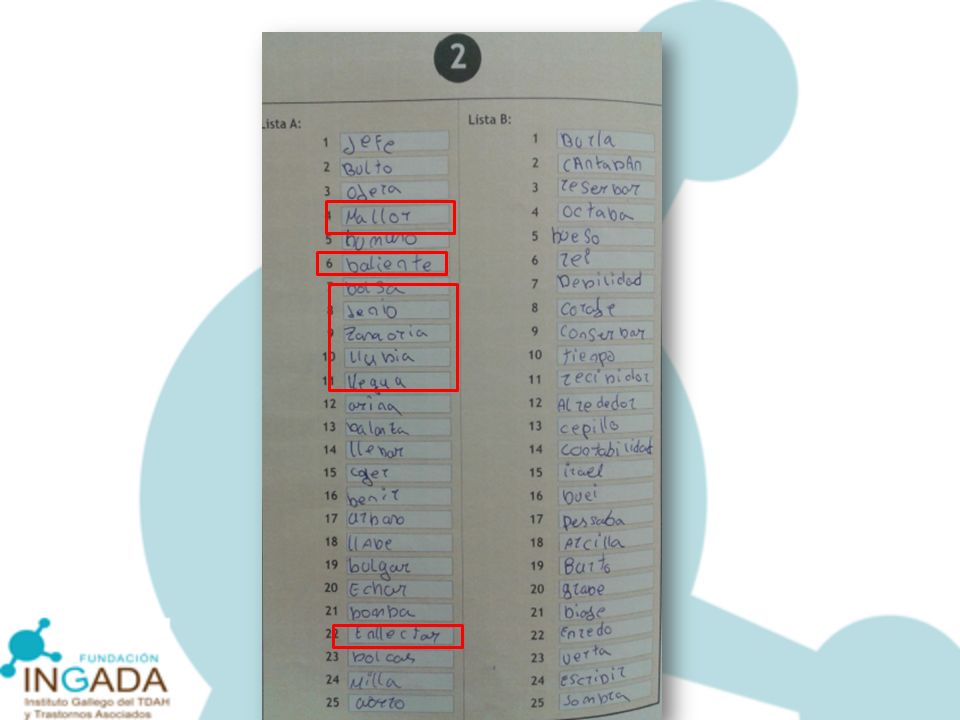 2
Lista A:
1 Jefe
2 Bulto
3 Ojera
4 Mallor
5 humano
6 baliente
7 bolsa
8 Jenio
9 Zanaoria
10 llubia
11 llegua
12 arina
13 balanta
14 llebar
15 coger
16 benir
17 urbano
18 llabe
19 bulgar
20 Echar
21 bomba
22 Inllectar
23 bolcas
24 Milla
25
Lista B:
1 Burla
2 CAntabAn
3 reserbar
4 octaba
5 hueso
6 rel
7 Debilidad
8 coraje
9 conserbar
10 tienpo
11 recibidor
12 Alrededor
13 cepillo
14 contabilidad
15 irael
16 buei
17 pessaba
18 Arcilla
19 Burto
20 grabe
21 biaje
22 Enredo
23 uerta
24 escribir
25 sombra
FUNDACIÓN
INGADA
Instituto Gallego del TDAH
y Trastornos Asociados